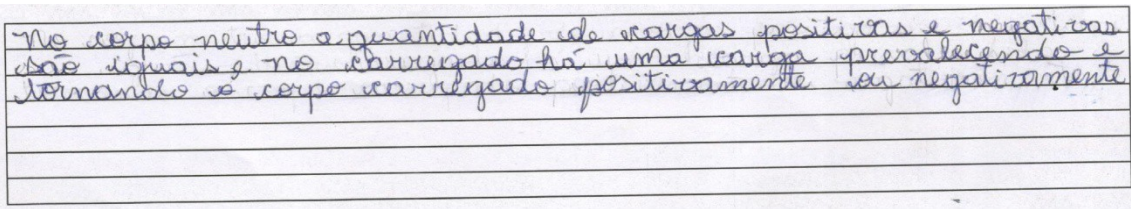 No corpo neutro a quantidade de cargas positivas e negativas
são iguais e no carregado há uma carga prevalecendo e
tornando o corpo carregado positivamente ou negativamente.